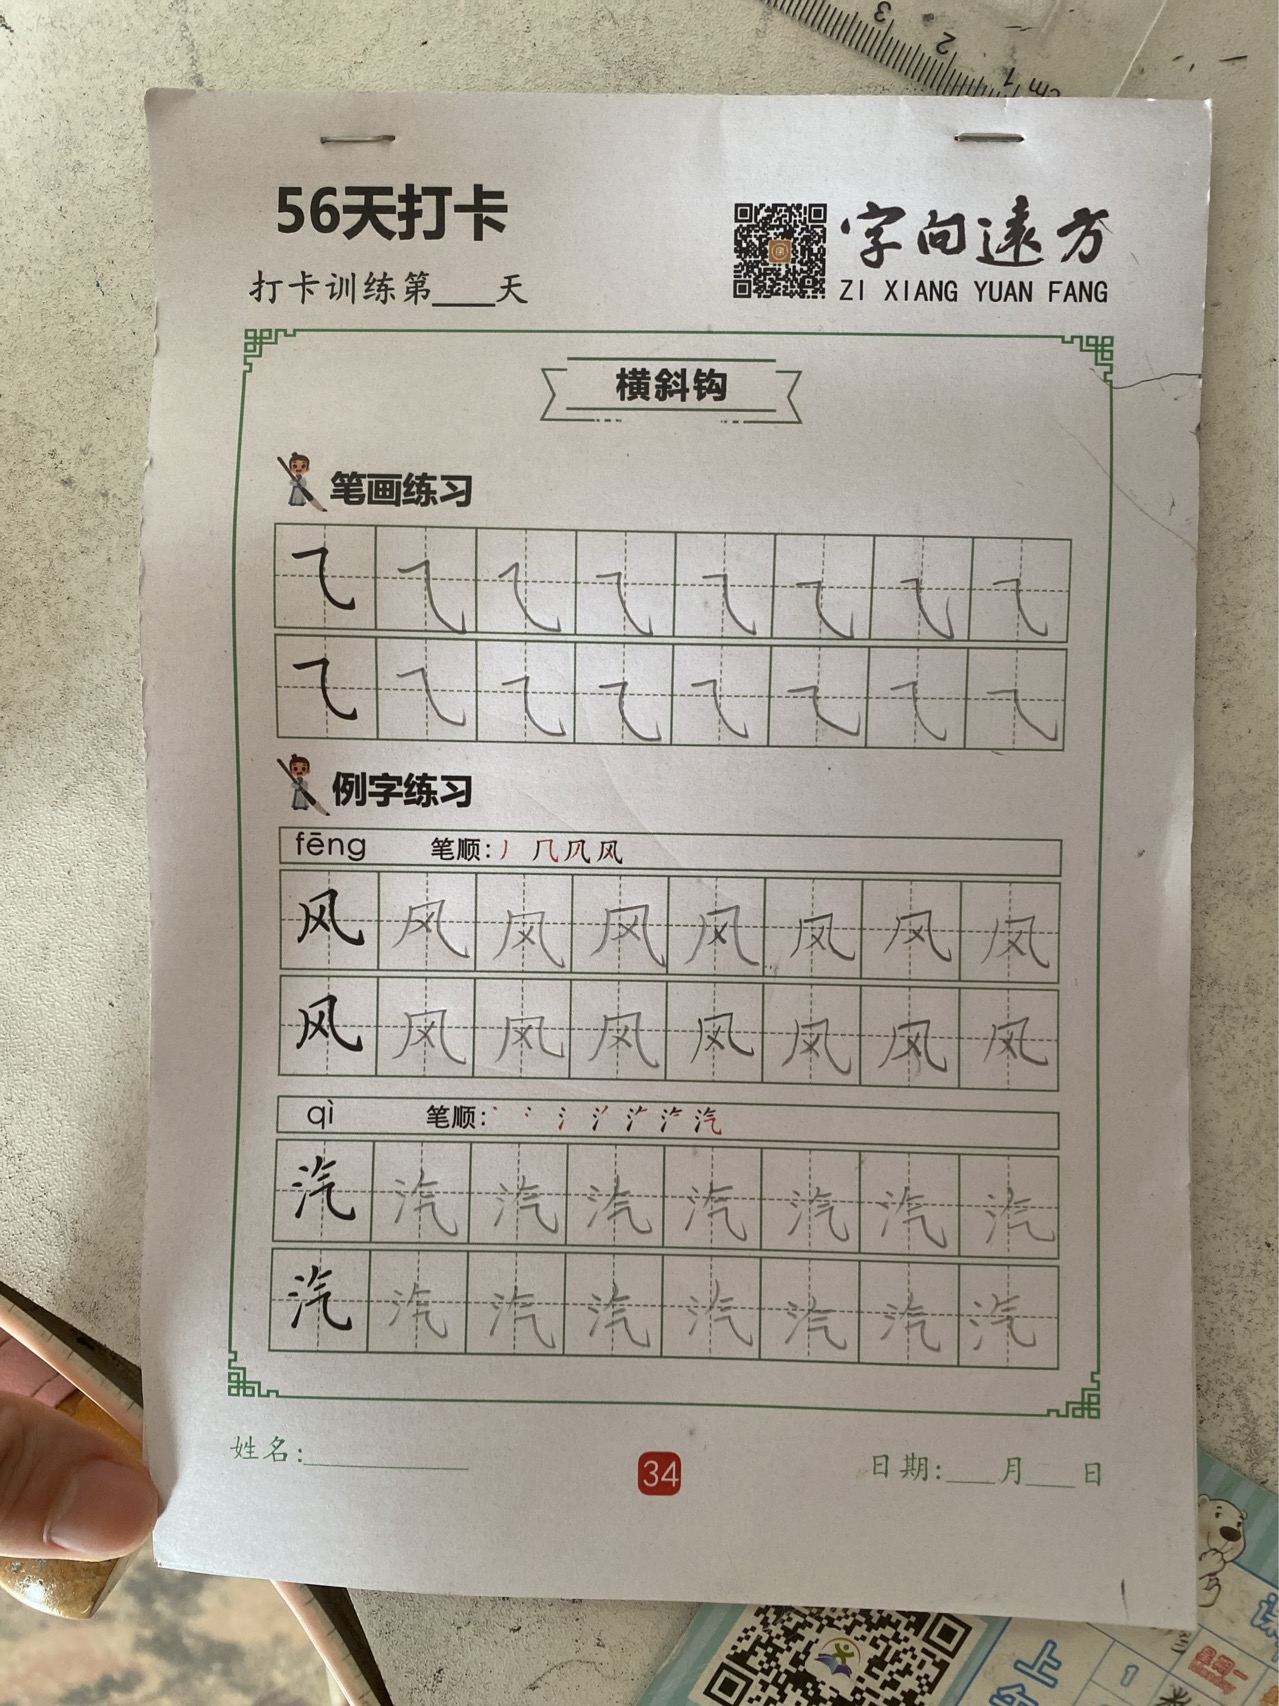 56天打卡
打卡训练第___天
字向遠方
ZI XIANG YUAN FANG
横斜钩
笔画练习
㇈ ㇈ ㇈ ㇈ ㇈ ㇈ ㇈ ㇈
㇈ ㇈ ㇈ ㇈ ㇈ ㇈ ㇈ ㇈
例字练习
fēng 笔顺: 丿 几 风 风
风 风 风 风 风 风 风 风
风 风 风 风 风 风 风 风
qì 笔顺: 丶 冫 氵 汽
汽 汽 汽 汽 汽 汽 汽 汽
汽 汽 汽 汽 汽 汽 汽 汽
姓名:___________
34
日期:___月___日
3 2 1 cm
上
1
星期一